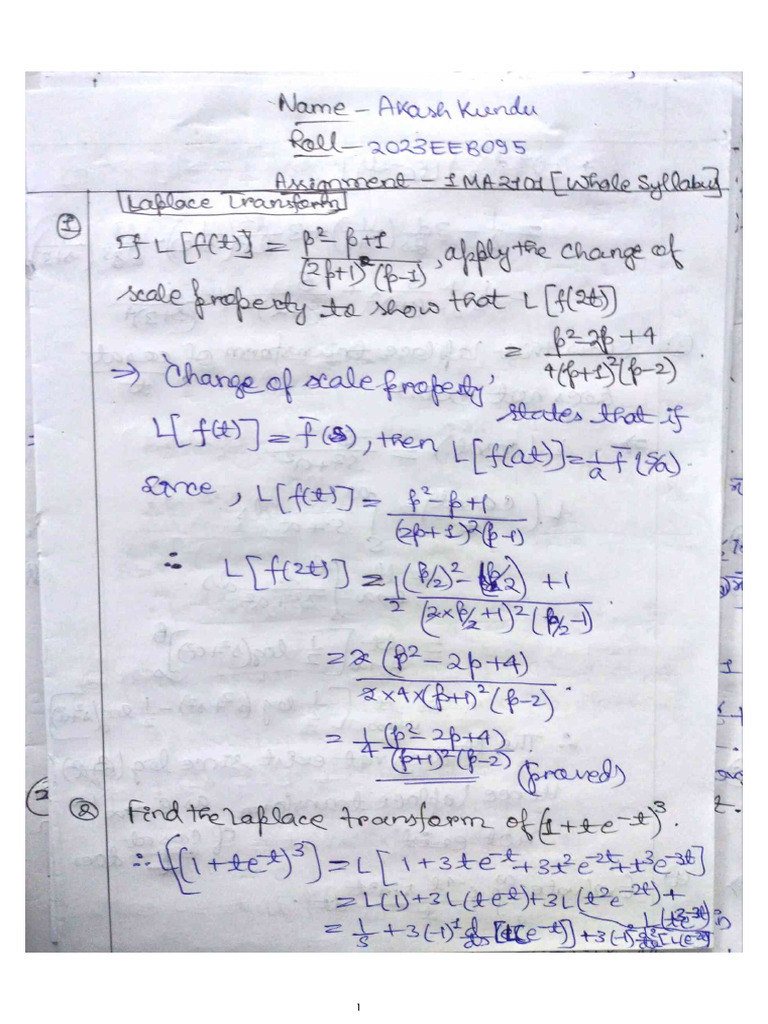 Name - Akash Kundu
Roll - 2023EEB095
Assignment - 1 MA2101 [Whole Syllabus]
Laplace Transform
① If L[f(t)] = p² - p + 1 / (2p+1)² (p-1), apply the change of
scale property to show that L[f(2t)]
= p² - 2p + 4 / 4(p+1)² (p-2).
⇒ 'Change of scale property'
states that if
L[f(t)] = f̄(s), then L[f(at)] = 1/a f̄(s/a)
since, L[f(t)] = p² - p + 1 / (2p+1)² (p-1)
∴ L[f(2t)] = 1/2 (p/2)² - (p/2) + 1 / (2×p/2 + 1)² (p/2 - 1)
= 2 (p² - 2p + 4) / 2×4×(p+1)² (p-2).
= 1/4 (p² - 2p + 4) / (p+1)² (p-2) (proved)
② Find the Laplace transform of (1+te^-t)³.
∴ L[(1+te^-t)³] = L[1 + 3te^-t + 3t²e^-2t + t³e^-3t]
= L(1) + 3L(te^-t) + 3L(t²e^-2t) +
L(t³e^-3t)
= 1/s + 3(-1)¹ d/ds [L(e^-t)] + 3(-1)² d²/ds² [L(e^-2t)]
1